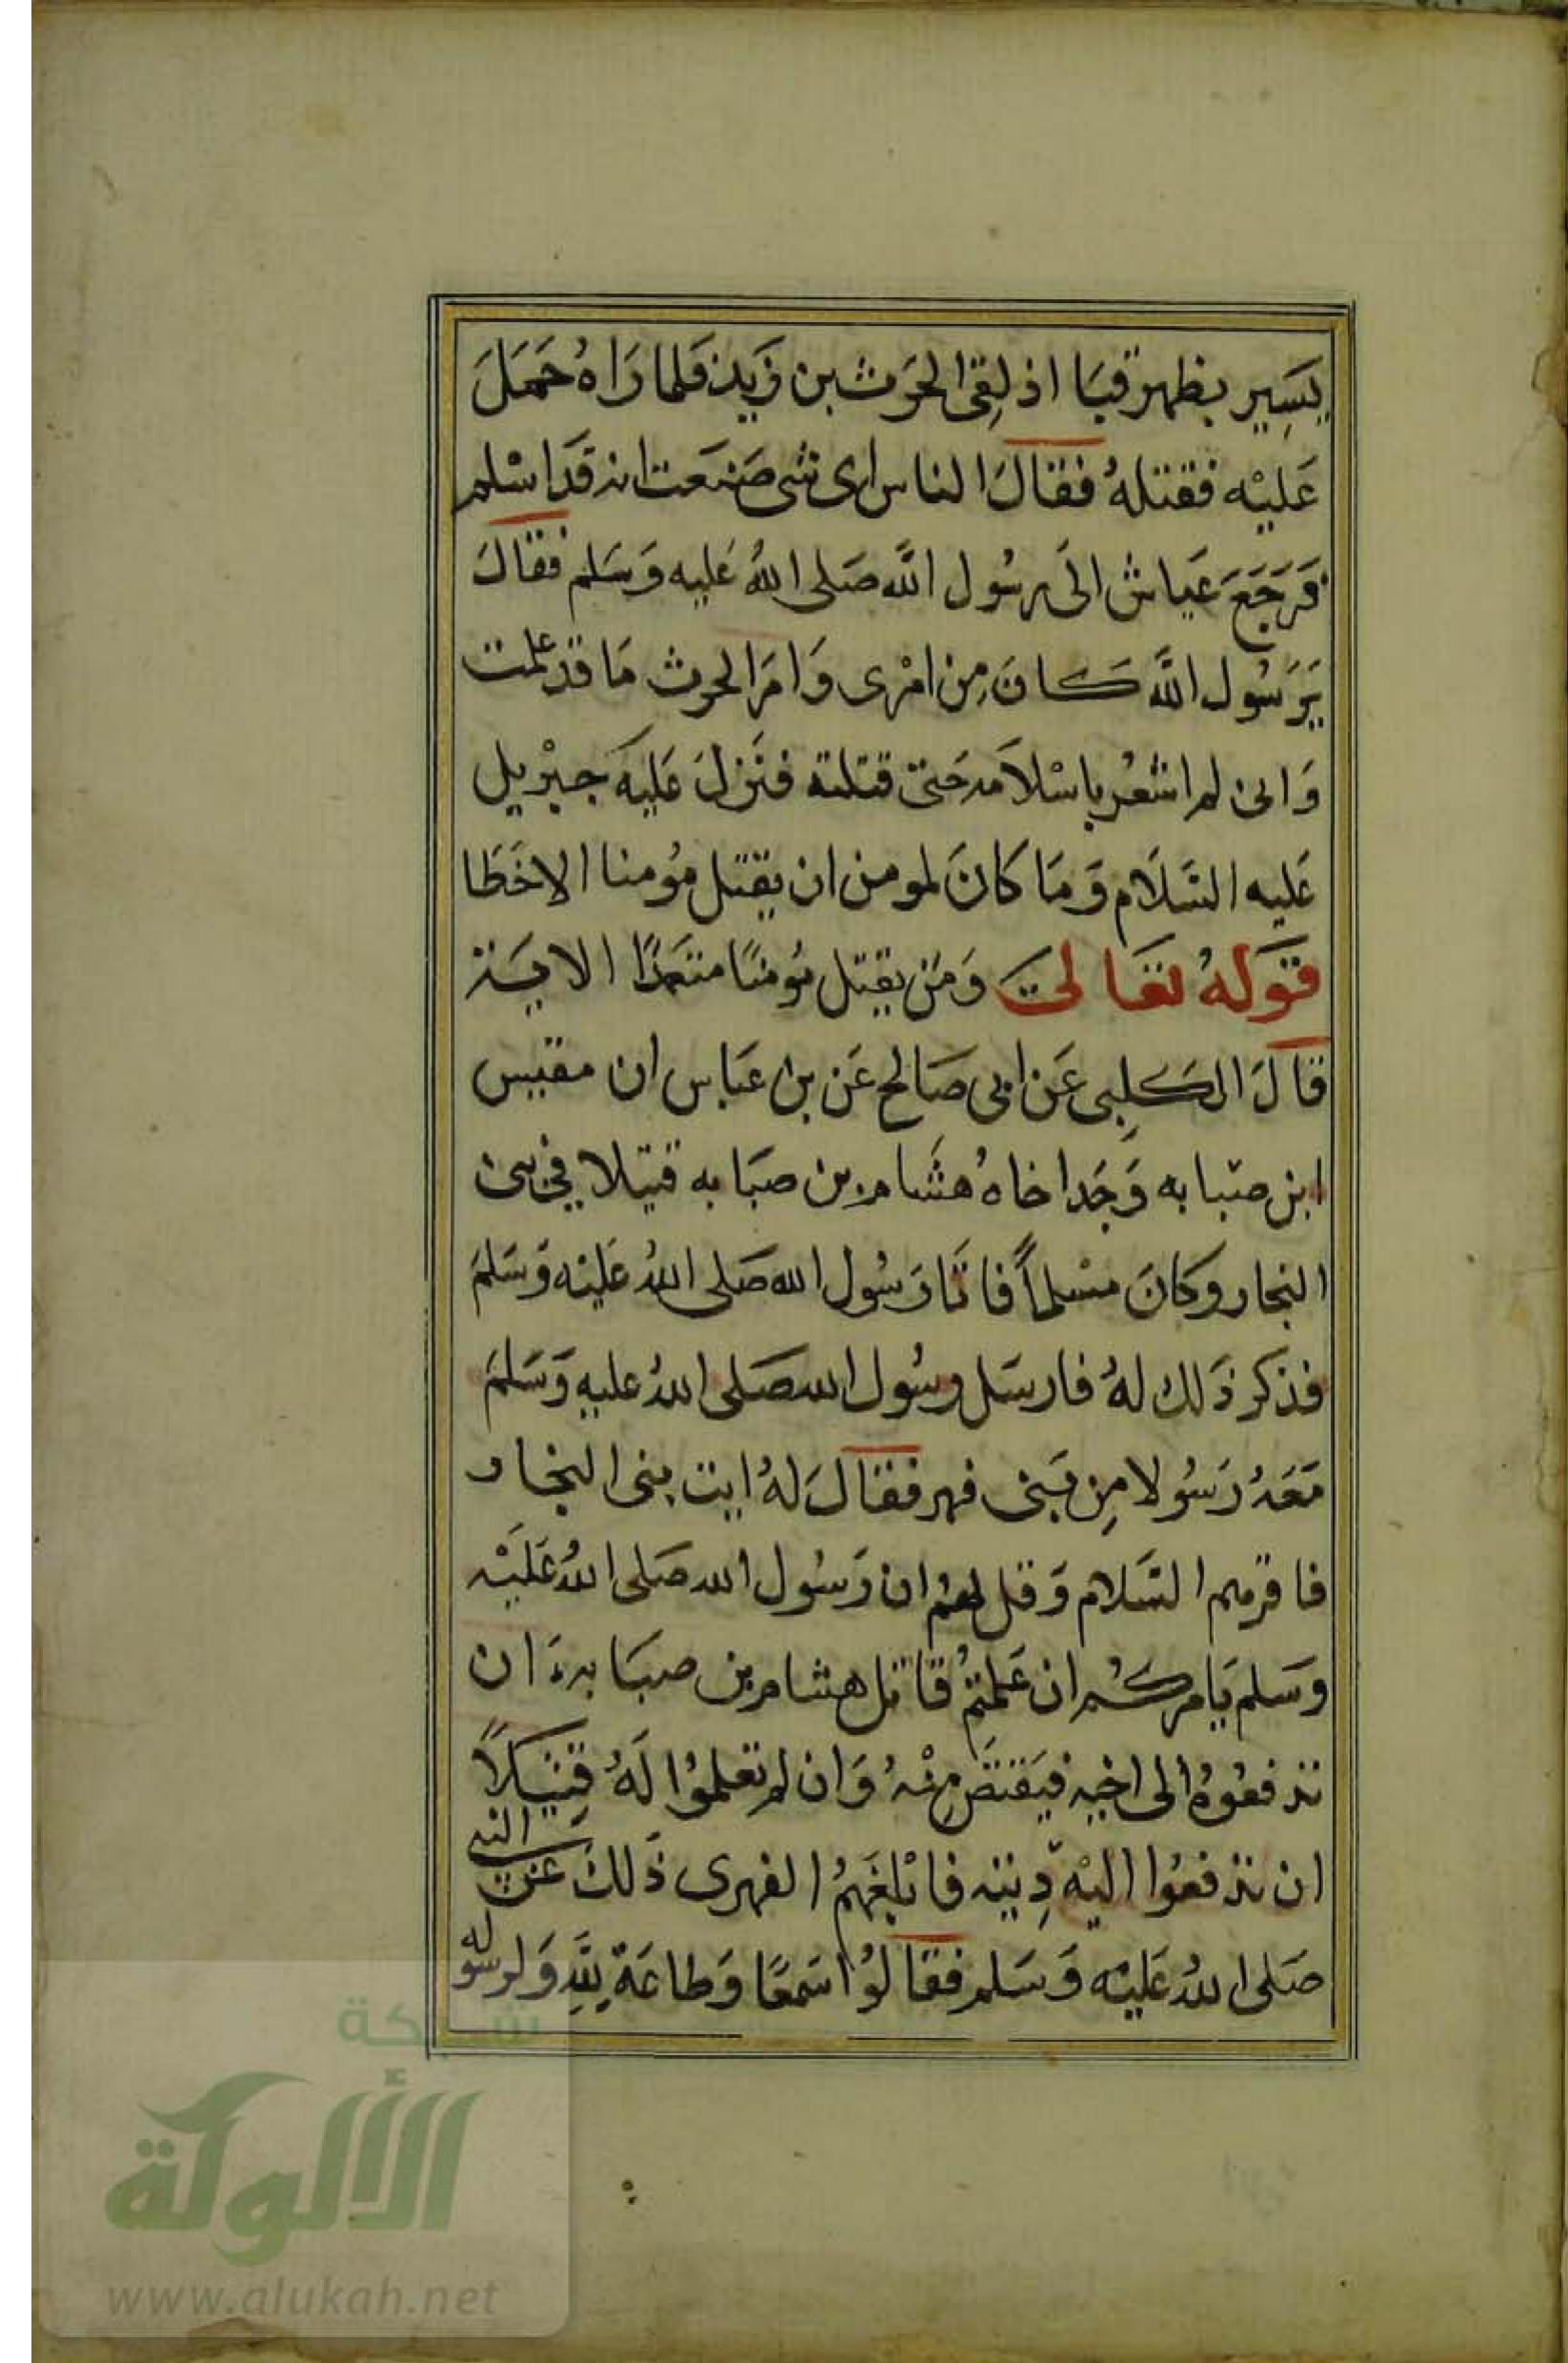 يَسِير بظهر قبَا اذ لِقى الحَرث بن زَيد فلما رَاهُ حَمَلَ
عَليْه فقتلهُ فقالَ الناس اى شى صَنعَت انه قَد اسْلم
فَرَجَعَ عَياش الى رسُول اللَّه صَلى اللهُ عَليه وَسَلم فقالَ
يَرَسُول اللَّه كانَ مِن امْرى وَامرَ الحرث مَا قد علمت
وَانى لم اشعُر باسْلامه حَتى قتلته فنَزلَ عَليَه جبْريل
عَليه السَّلَام وَمَا كانَ لمومن ان يقتل مؤمنا الا خَطَا
قَولهُ تعَالىَ وَمَن يقتل مُومنًا متعمدًا الايَة
قالَ الكلِبى عَن ابى صَالح عَن بن عَباس ان مقيس
ابن صبابه وَجَد اخاهُ هشَام بن صبَابه قتيلا في بنى
النجار وكانَ مسْلماً فاتَا رَسُول الله صَلى اللهُ عَليْه وَسَلمَ
فذكر ذَلك لهُ فارسَل رسُول الله صَلى اللهُ عليه وَسَلمَ
مَعَهُ رَسُولا مِن بَنى فهر فقالَ لهُ ايت بنى النجار
فاقرهم السَّلام وَقل لهم ان رَسُول الله صَلى اللهُ عَليْه
وَسَلم يَامركُم ان عَلمتُم قاتل هشام بن صبَابه ان
تدفعُوهُ الى اخيه فيَقتصَّ مِنْهُ وَان لم تعلمُوا لَهُ قتيلاً
ان تدفعُوا اليْه دِيته فابْلغَهمُ الفهرى ذَلك عَن النبي
صَلى اللهُ عَليْه وَسَلم فقالوُا سَمعًا وَطاعَة لِلَّهِ وَلرسوله
شبكة
الألوكة
www.alukah.net